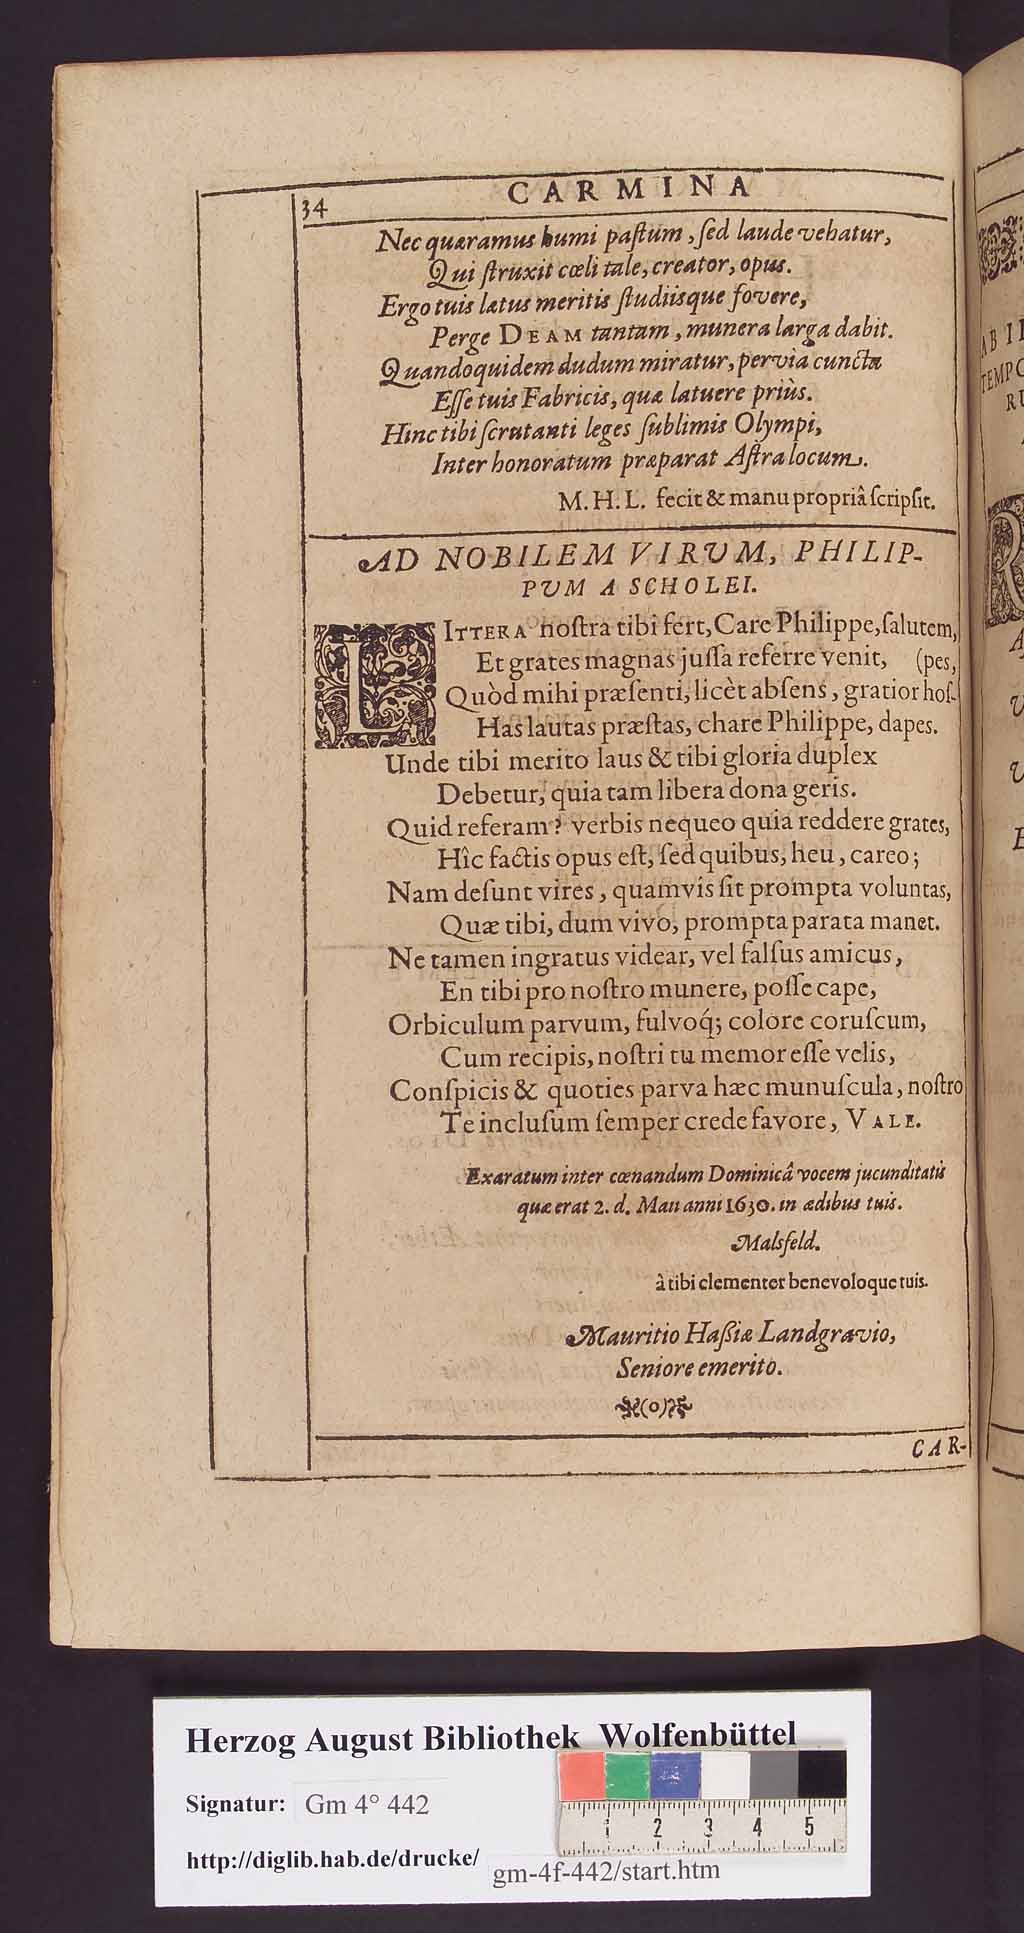 34
CARMINA
Nec quæramus humi paſtum, ſed laude vehatur,
Qui ſtruxit cœli tale, creator, opus.
Ergo tuis lætus meritis ſtudiisque fovere,
Perge DEAM tantam, munera larga dabit.
Quandoquidem dudum miratur, pervia cuncta
Eſſe tuis Fabricis, quæ latuere priùs.
Hinc tibi ſcrutanti leges ſublimis Olympi,
Inter honoratum præparat Aſtra locum.
M. H. L. fecit & manu propriâ ſcripſit.
AD NOBILEM VIRVM, PHILIP-
PVM A SCHOLEI.
LITTERA noſtra tibi fert, Care Philippe, ſalutem,
Et grates magnas juſſa referre venit, (pes,
Quòd mihi præſenti, licèt abſens, gratior hoſ-
Has lautas præſtas, chare Philippe, dapes.
Unde tibi merito laus & tibi gloria duplex
Debetur, quia tam libera dona geris.
Quid referam? verbis nequeo quia reddere grates,
Hîc factis opus eſt, ſed quibus, heu, careo;
Nam deſunt vires, quamvis ſit prompta voluntas,
Quæ tibi, dum vivo, prompta parata manet.
Ne tamen ingratus videar, vel falſus amicus,
En tibi pro noſtro munere, poſſe cape,
Orbiculum parvum, fulvoq́; colore coruſcum,
Cum recipis, noſtri tu memor eſſe velis,
Conſpicis & quoties parva hæc munuſcula, noſtro
Te incluſum ſemper crede favore, VALE.
Exaratum inter cœnandum Dominicâ vocem jucunditatis
quæ erat 2. d. Maii anni 1630. in ædibus tuis.
Malsfeld.
à tibi clementer benevoloque tuis.
Mauritio Haßiæ Landgravio,
Seniore emerito.
(o)
CAR-
AB I
TEMPO
RU
R
Herzog August Bibliothek Wolfenbüttel
Signatur: Gm 4° 442
http://diglib.hab.de/drucke/ gm-4f-442/start.htm
1 2 3 4 5